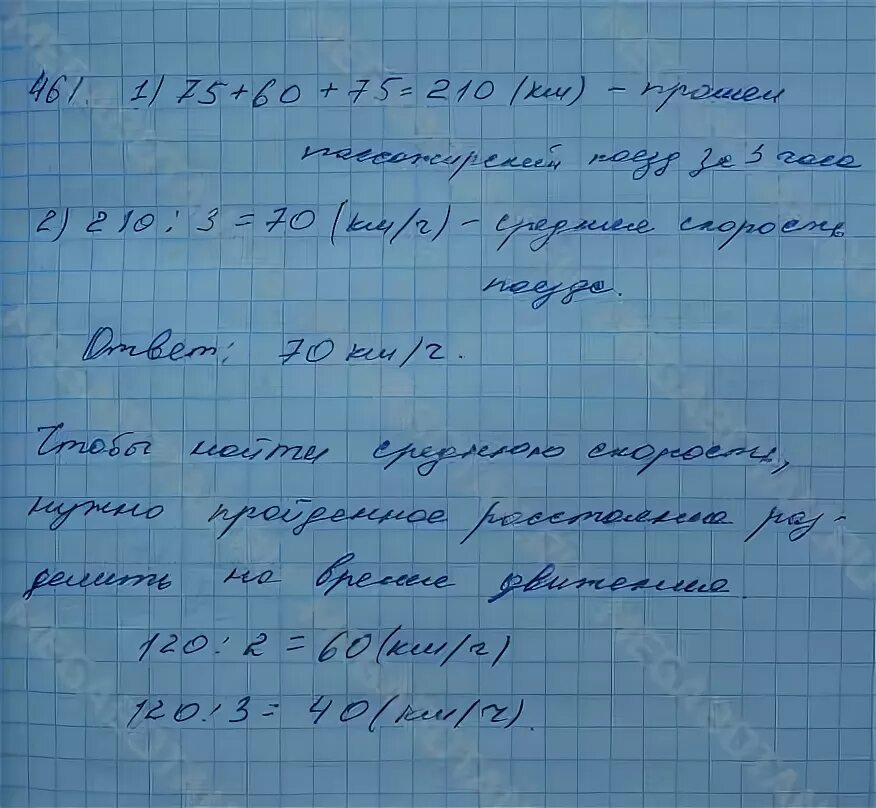 461. 1) 75 + 60 + 75 = 210 (км) - прошел
пассажирский поезд за 3 часа
2) 210 : 3 = 70 (км/ч) - средняя скорость
поезда.
Ответ: 70 км/ч.
Чтобы найти среднюю скорость,
нужно пройденное расстояние раз-
делить на время движения.
120 : 2 = 60 (км/ч)
120 : 3 = 40 (км/ч).